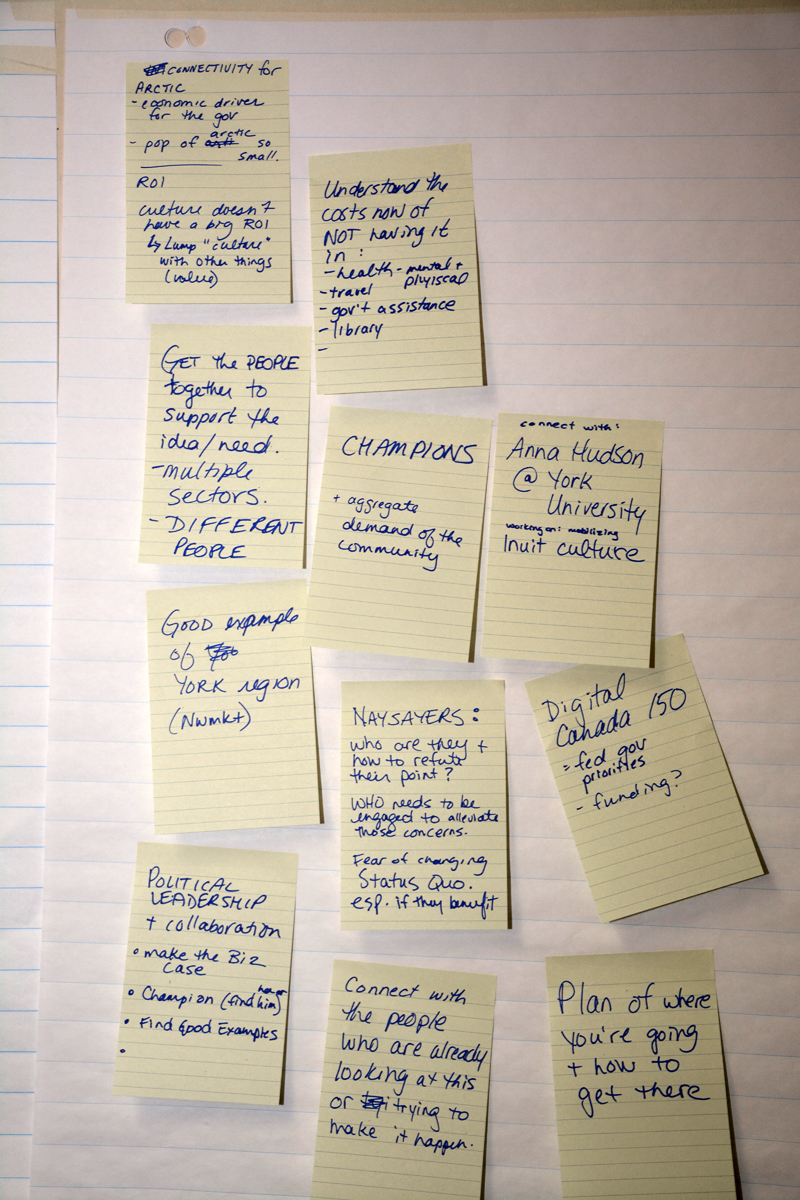 CONNECTIVITY for
ARCTIC
- economic driver
for the gov
- pop of arctic so
small.
ROI
culture doesn't
have a big ROI
↳ Lump "culture"
with other things
(value)
Understand the
costs now of
NOT having it
in :
- health - mental +
phyiscal
- travel
- gov't assistance
- library
-
GET the PEOPLE
together to
support the
idea/need.
- multiple
sectors.
- DIFFERENT
PEOPLE
CHAMPIONS
+ aggregate
demand of the
community
connect with:
Anna Hudson
@ York
University
working on: mobilizing
Inuit culture
GOOD example
of
YORK region
(Nwmkt)
NAYSAYERS:
who are they +
how to refute
their point?
WHO needs to be
engaged to alleviate
those concerns.
Fear of changing
Status Quo.
esp. if they benefit
Digital
Canada 150
- fed gov
priorities
- funding?
POLITICAL
LEADERSHIP
+ collaboration
• make the Biz
Case
• Champion (find her or him)
• Find Good Examples
•
Connect with
the people
who are already
looking at this
or trying to
make it happen.
Plan of where
you're going
+ how to
get there